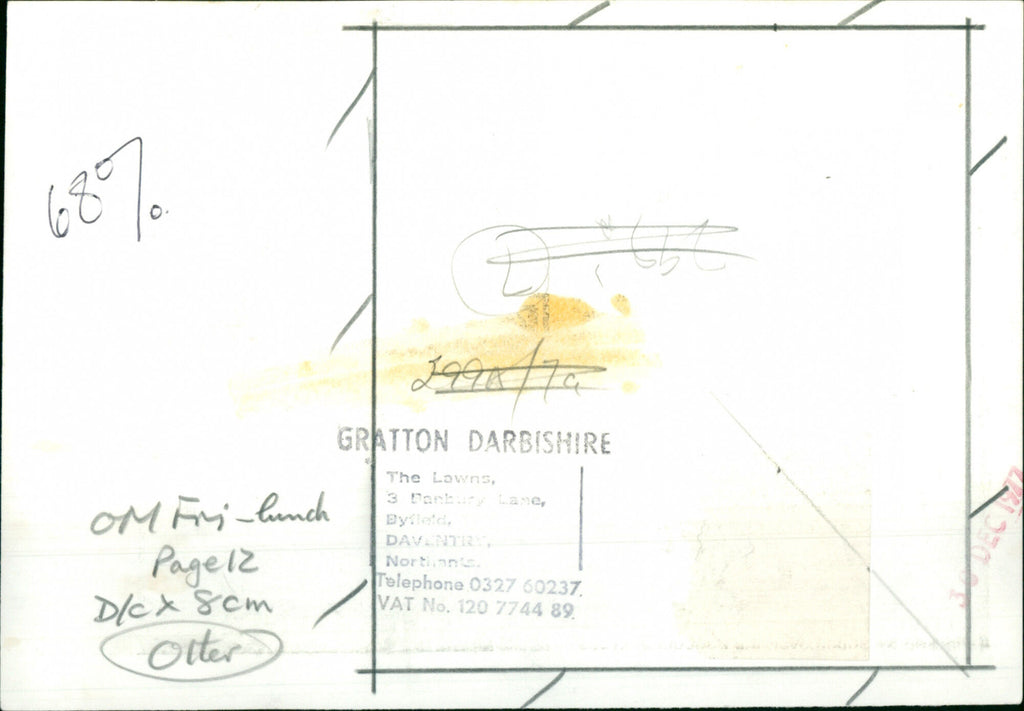 68%
GRATTON DARBISHIRE
The Lawns,
3 Banbury Lane,
Byfield,
DAVENTRY,
Northants.
Telephone 0327 60237.
VAT No. 120 7744 89.
OM Fri - lunch
Page 12
D/c x 8cm
Otter
DEC